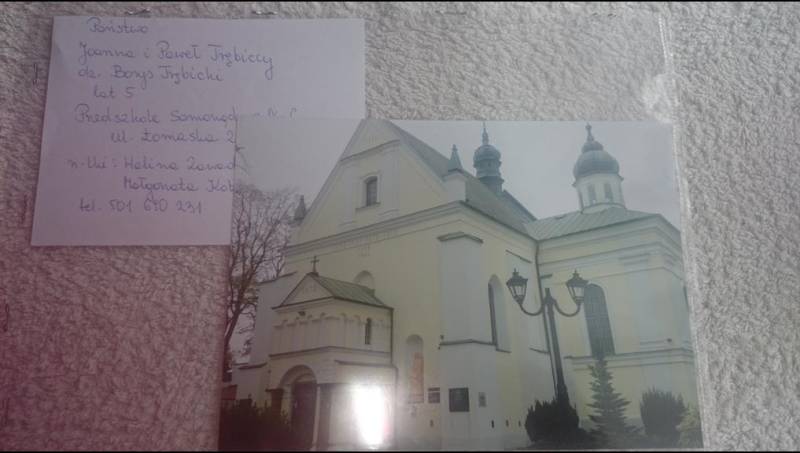 Państwo
Joanna i Paweł Trębiccy
dz. Borys Trębicki
lat 5
Przedszkole
ul. Łomaska 2
n-lki: Halina
Małgorzata
tel. 501 690 231